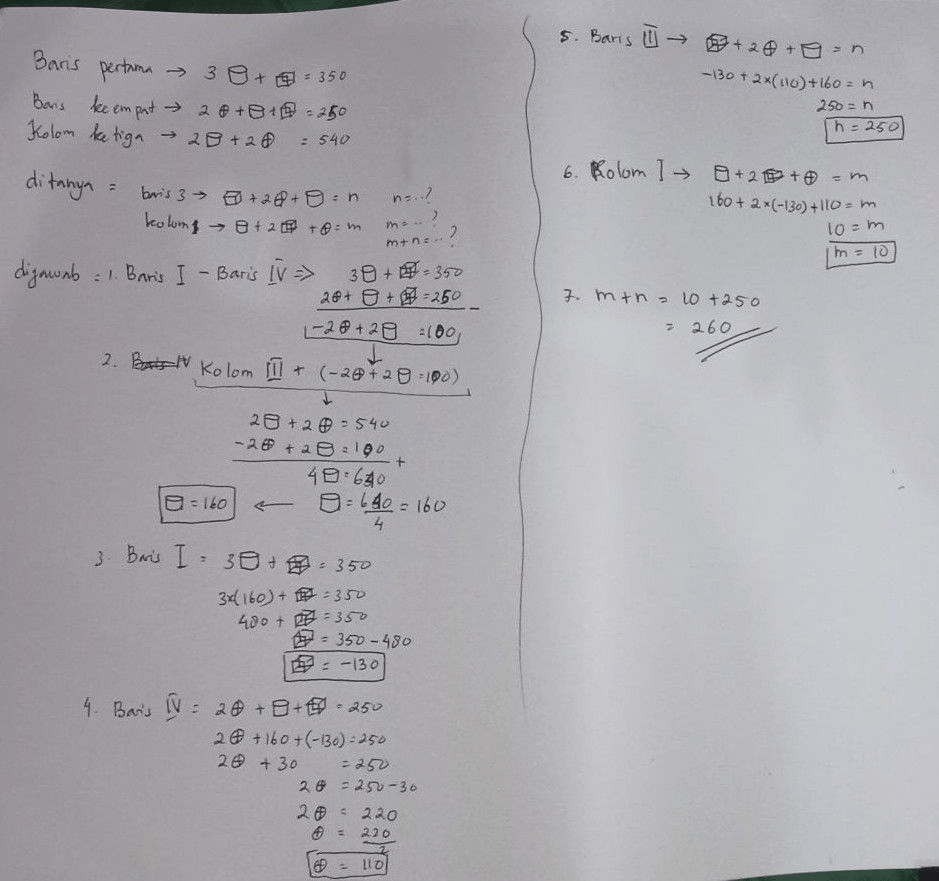 Baris pertama → 3 ⌸ + ⌗ = 350
Baris keempat → 2 ⊕ + ⌸ + ⌗ = 250
Kolom ketiga → 2 ⌸ + 2 ⊕ = 540
ditanya = baris 3 → ⌗ + 2 ⊕ + ⌸ = n n=..?
kolom 1 → ⌸ + 2 ⌗ + ⊕ = m m=..?
m+n=..?
dijawab = 1. Baris I - Baris IV ⇒ 3 ⌸ + ⌗ = 350
2 ⊕ + ⌸ + ⌗ = 250 -
-2 ⊕ + 2 ⌸ = 100
↓
2. Kolom III + (-2 ⊕ + 2 ⌸ = 100)
↓
2 ⌸ + 2 ⊕ = 540
-2 ⊕ + 2 ⌸ = 100
+
4 ⌸ = 640
⌸ = 160 ← ⌸ = 640/4 = 160
3. Baris I = 3 ⌸ + ⌗ = 350
3×(160) + ⌗ = 350
480 + ⌗ = 350
⌗ = 350 - 480
⌗ = -130
4. Baris IV = 2 ⊕ + ⌸ + ⌗ = 250
2 ⊕ + 160 + (-130) = 250
2 ⊕ + 30 = 250
2 ⊕ = 250 - 30
2 ⊕ = 220
⊕ = 220/2
⊕ = 110
5. Baris III → ⌗ + 2 ⊕ + ⌸ = n
-130 + 2×(110) + 160 = n
250 = n
n = 250
6. Kolom I → ⌸ + 2 ⌗ + ⊕ = m
160 + 2×(-130) + 110 = m
10 = m
m = 10
7. m+n = 10 + 250
= 260